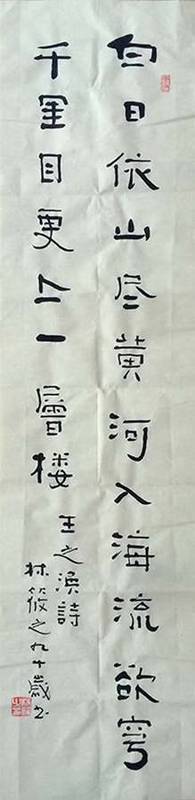 白日依山尽黄河入海流欲穹
千里目更上一層楼
王之渙詩
林筱之九十歲书